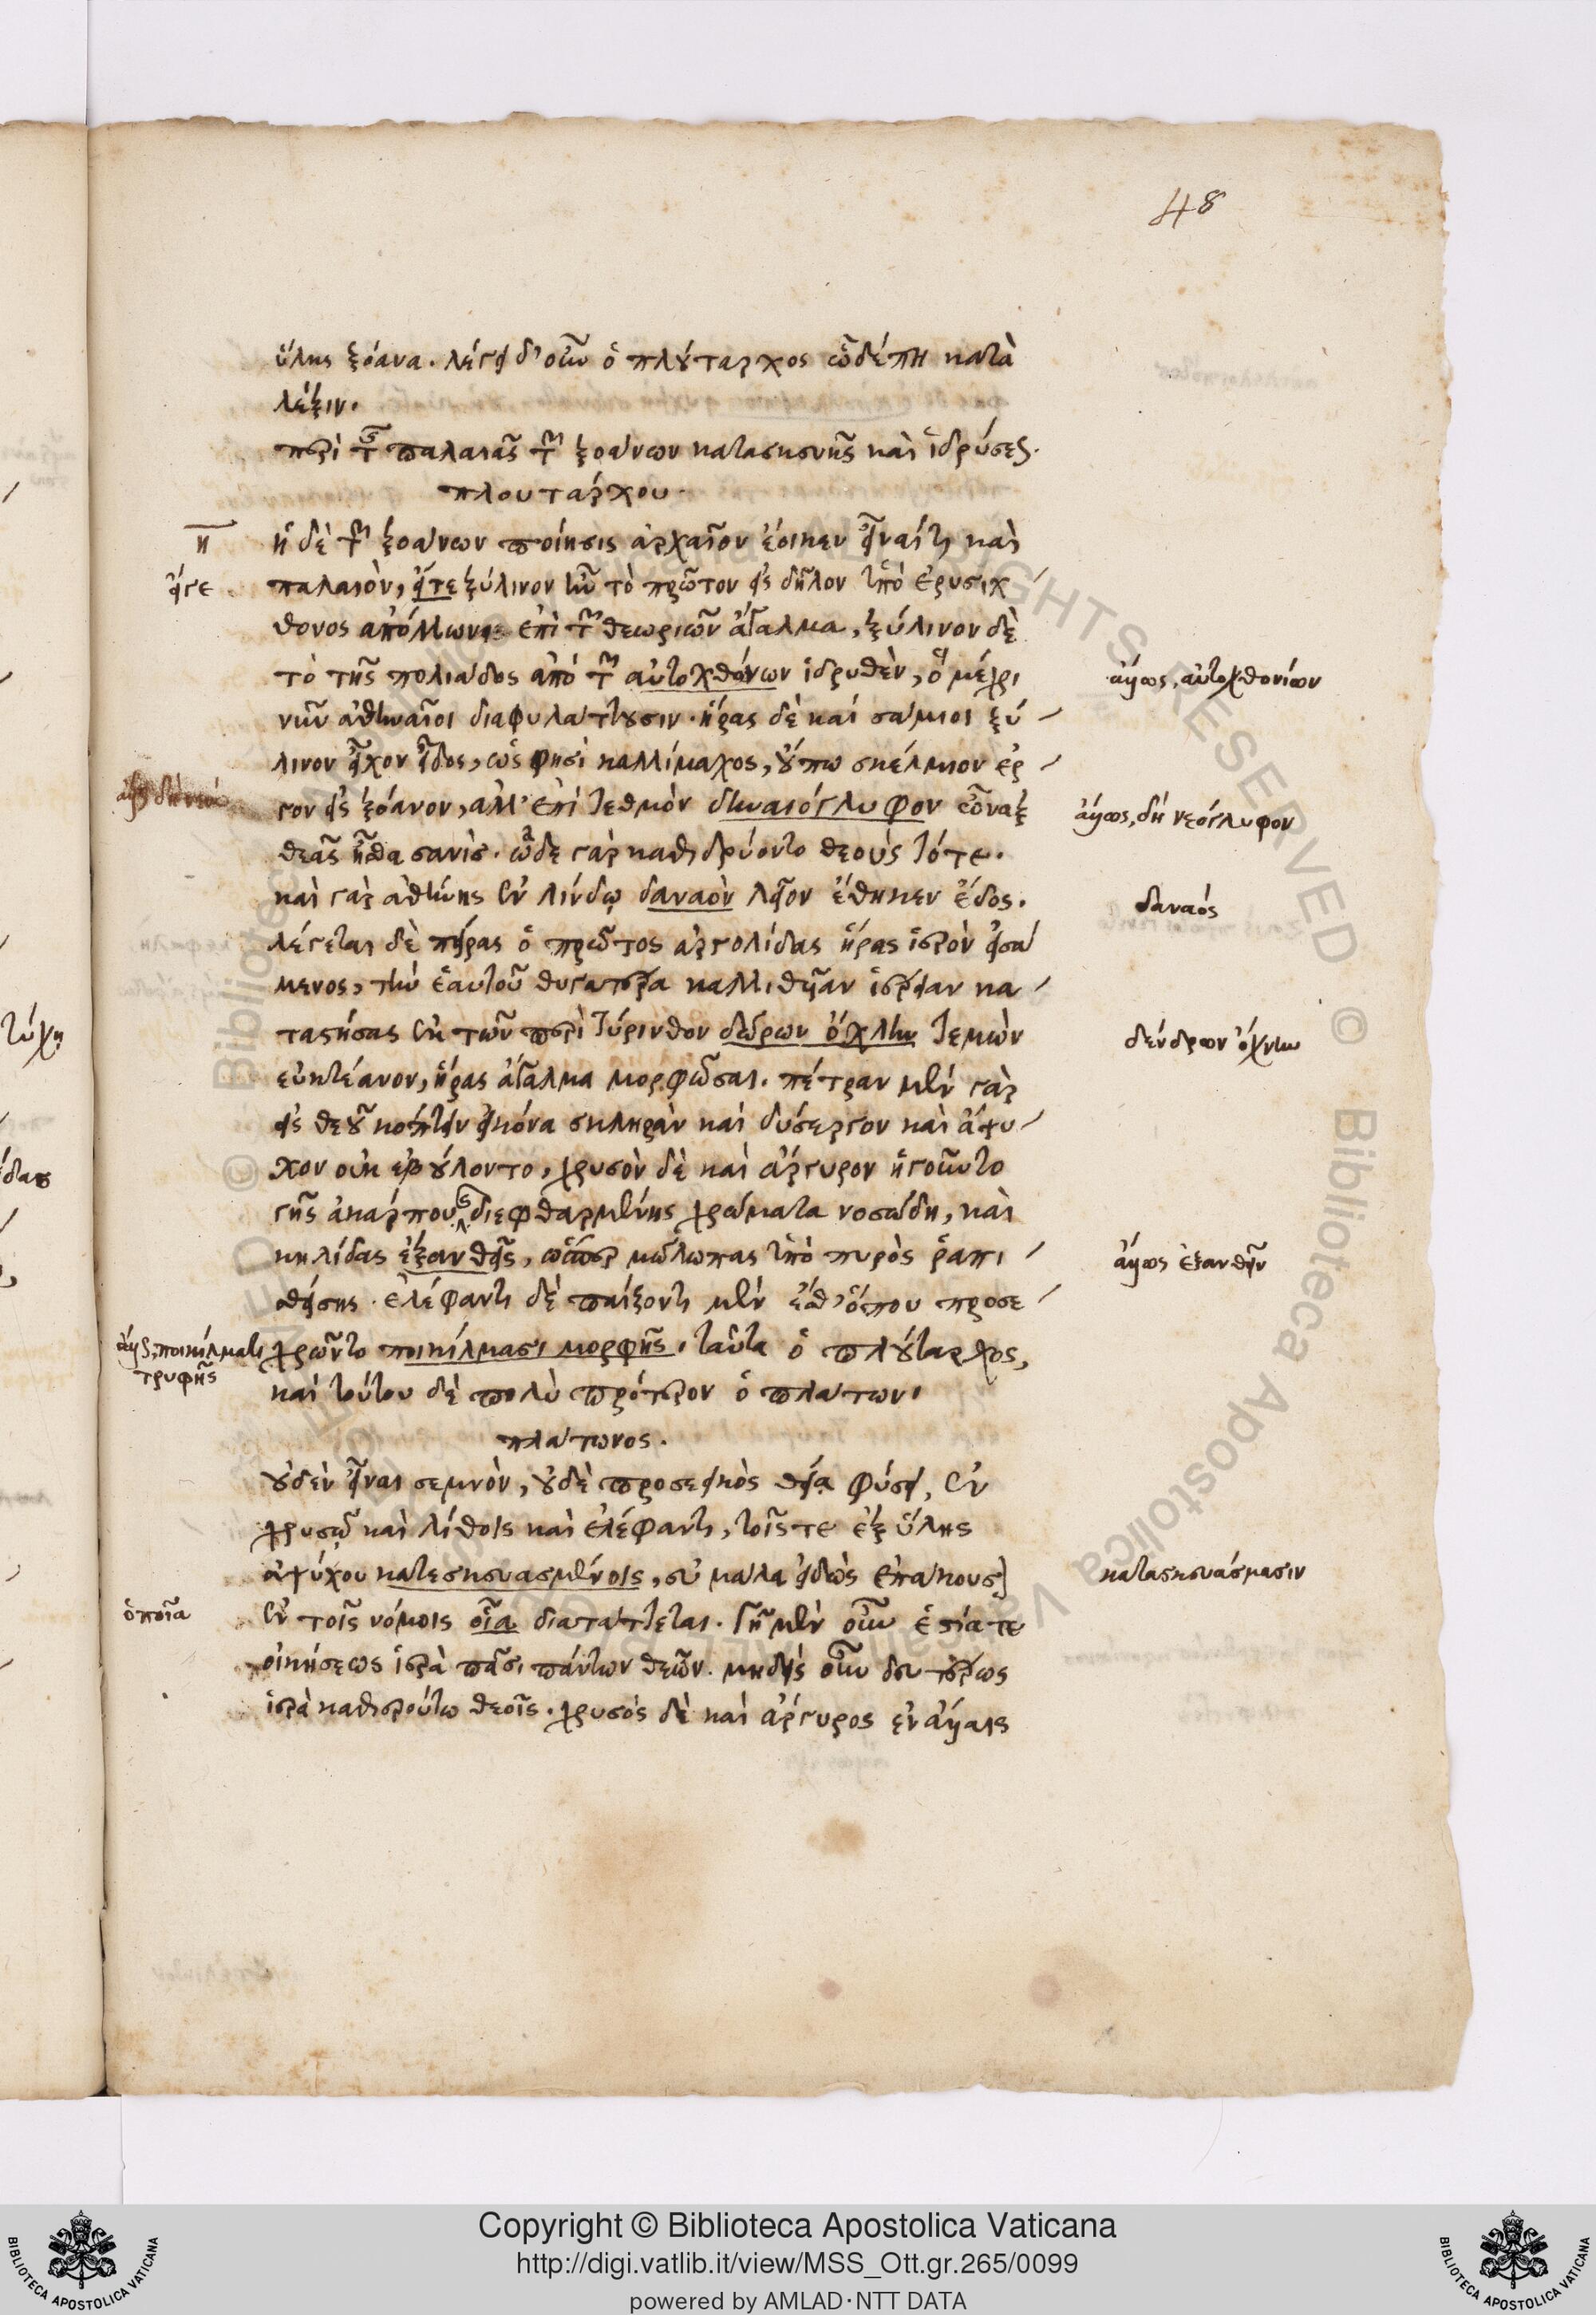 48
ὕλης ξόανα. λέγει δ' οὖν ὁ πλούταρχος ὧδέ πη κατὰ
λέξιν.
περὶ τῆς παλαιᾶς τῶν ξοάνων κατασκευῆς καὶ ἱδρύσεως.
πλουτάρχου.
η
ἡ δὲ τῶν ξοάνων ποίησις ἀρχαῖον ἔοικεν εἶναί τι καὶ
εἴγε
παλαιὸν, εἶτε ξύλινον ἦν τὸ πρῶτον εἰς δῆλον ὑπὸ ἐρυσίχ
θονος ἀπόλλωνι ἐπὶ τῶν θεωριῶν ἄγαλμα, ξύλινον δὲ
τὸ τῆς πολιάδος ἀπὸ τῶν αὐτοχθόνων ἱδρυθὲν, ὃ μέχρι
ἄλλως, αὐτοχθονίων
νῦν ἀθηναῖοι διαφυλάττουσιν. ἥρας δὲ καὶ σάμιοι ξύ
λινον εἶχον εἶδος, ὥς φησι καλλίμαχος, οὔπω σκέλμιον ἔρ
γον εἰς ξόανον, ἀλλ' ἐπὶ τεθμὸν δηναιόγλυφον
ἄλλως, δὴ νεόγλυφον
θεᾶς ἦσθα σανίς. ὧδε γὰρ καθιδρύοντο θεοὺς τότε.
καὶ γὰρ ἀθήνης ἐν λίνδῳ δαναὸν λεῖον ἔθηκεν ἕδος.
δαναός
λέγεται δὲ πείρας ὁ πρῶτος ἀργολίδος ἥρας ἱερὸν εἱσά
μενος, τὴν ἑαυτοῦ θυγατέρα καλλιθῆαν ἱέρειαν κα
ταστήσας ἐκ τῶν περὶ τύρινθον δένδρων ὄχλην τεμὼν
δένδρων ὄχνην
εὐκτέανον, ἥρας ἄγαλμα μορφῶσαι. πέτραν μὲν γὰρ
εἰς θεοῦ κόπτειν εἰκόνα σκληρὰν καὶ δύσεργον καὶ ἄψυ
χον οὐκ ἐβούλοντο, χρυσὸν δὲ καὶ ἄργυρον ἡγοῦντο
γῆς ἀκάρπου διεφθαρμένης χρώματα νοσώδη, καὶ
κηλίδας ἐξανθεῖς, ὥσπερ μώλωπας ὑπὸ πυρὸς ῥαπι
ἄλλως ἐξανθεῖν
σθείσης. ἐλέφαντι δὲ παίζοντες μὲν ἔσθ' ὅπου προσε
ἄλλως, ποικίλματι
τρυφῆς
χρῶντο ποικίλμασι μορφῆς. ταῦτα ὁ πλούταρχος,
καὶ τούτου δὲ πολὺ πρότερον ὁ πλάτων.
πλάτωνος.
οὐδὲν εἶναι σεμνὸν, οὐδὲ προσεικὸς θείᾳ φύσει, ἐν
χρυσῷ καὶ λίθοις καὶ ἐλέφαντι, τοῖς τε ἐξ ὕλης
ἀψύχου κατεσκευασμένοις, εὖ μάλα εἰδὼς ἐπάκουσον
κατασκευάσμασιν
ὁποῖα
ἐν τοῖς νόμοις οἷα διατάττεται. γῆ μὲν οὖν ἑστία τε
οἰκήσεως ἱερὰ πᾶσι πάντων θεῶν. μηδεὶς οὖν δευτέρως
ἱερὰ καθιερούτω θεοῖς. χρυσὸς δὲ καὶ ἄργυρος ἐν ἄλλαις
Copyright © Biblioteca Apostolica Vaticana
http://digi.vatlib.it/view/MSS_Ott.gr.265/0099
powered by AMLAD·NTT DATA
BIBLIOTECA APOSTOLICA VATICANA
BIBLIOTECA APOSTOLICA VATICANA